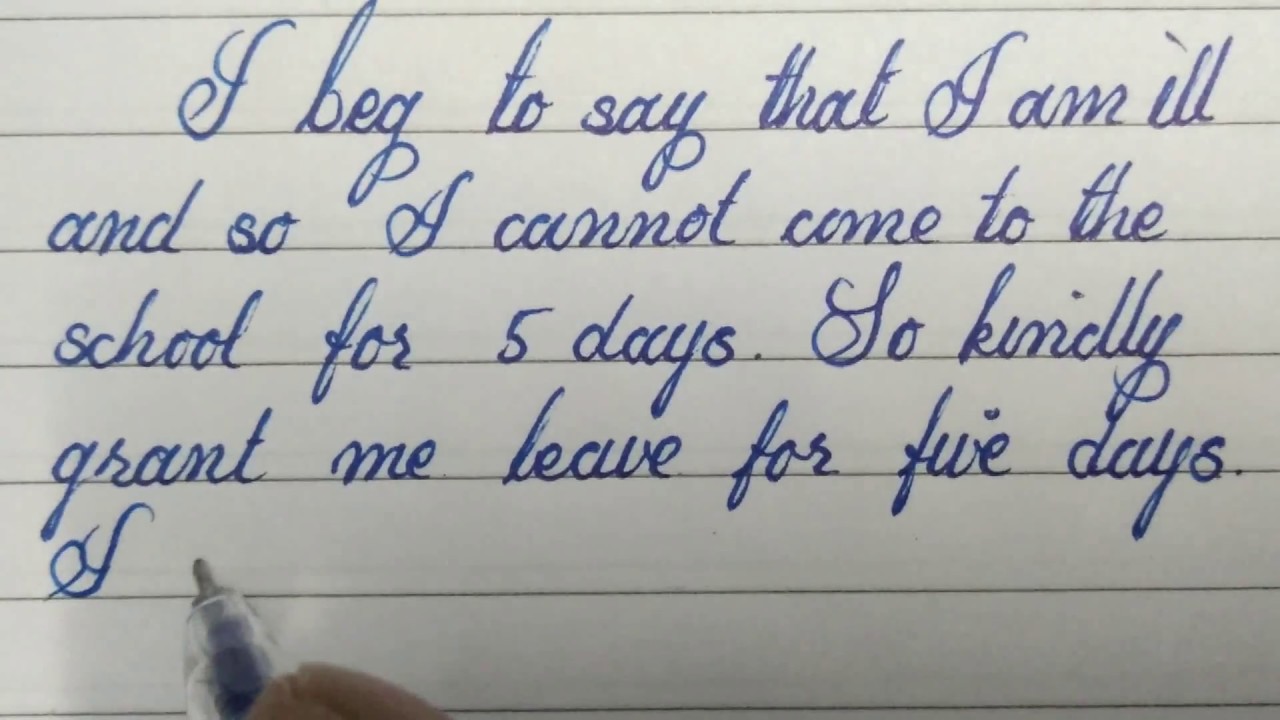 I beg to say that I am ill
and so I cannot come to the
school for 5 days. So kindly
grant me leave for five days.
I